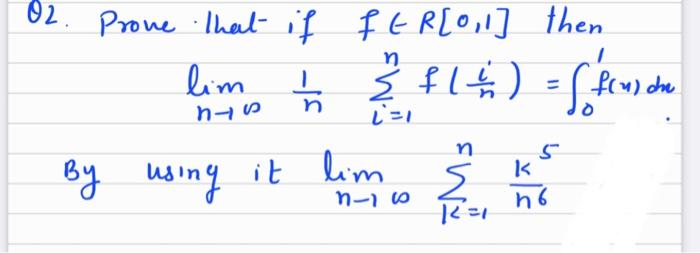 Q2. Prove that if f ∈ R[0,1] then
lim n→∞ 1/n n∑i=1 f(i/n) = ∫₀¹ f(x) dx.
By using it lim n→∞ n∑k=1 k⁵/n⁶